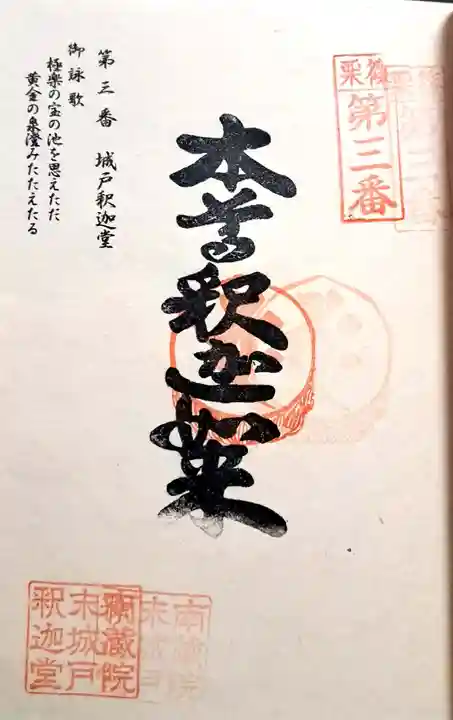 第三番
本尊釈迦
第三番　城戸釈迦堂
御詠歌
極楽の宝の池を思えただ
黄金の泉澄みたたえたる
南蔵院
末城戸
釈迦堂